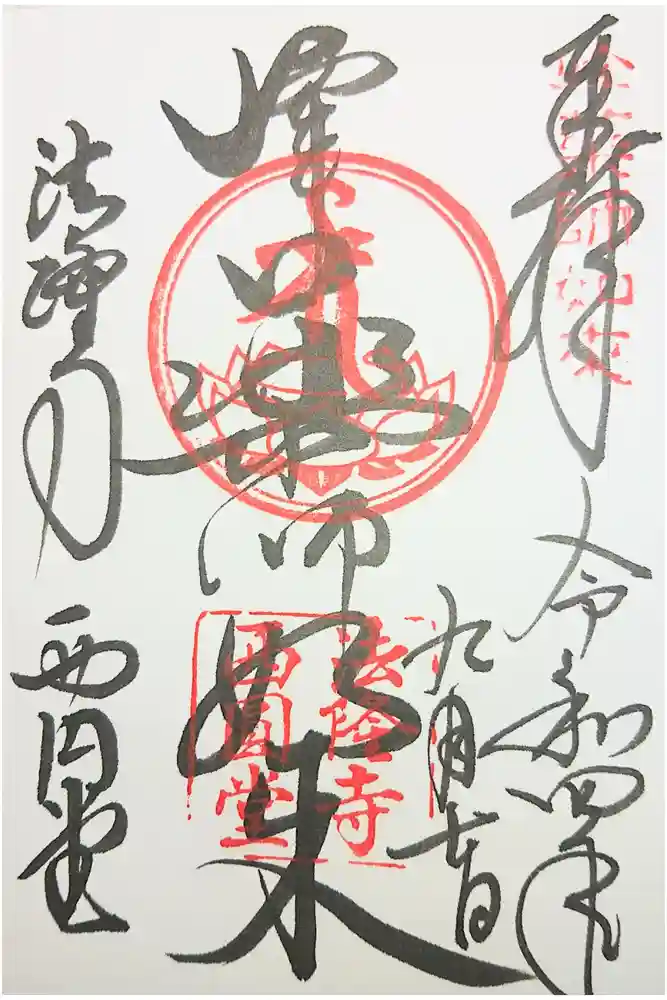 奉拝
令和四年
九月
峰の薬師如来
法隆寺
西円堂
法隆寺
西圓堂